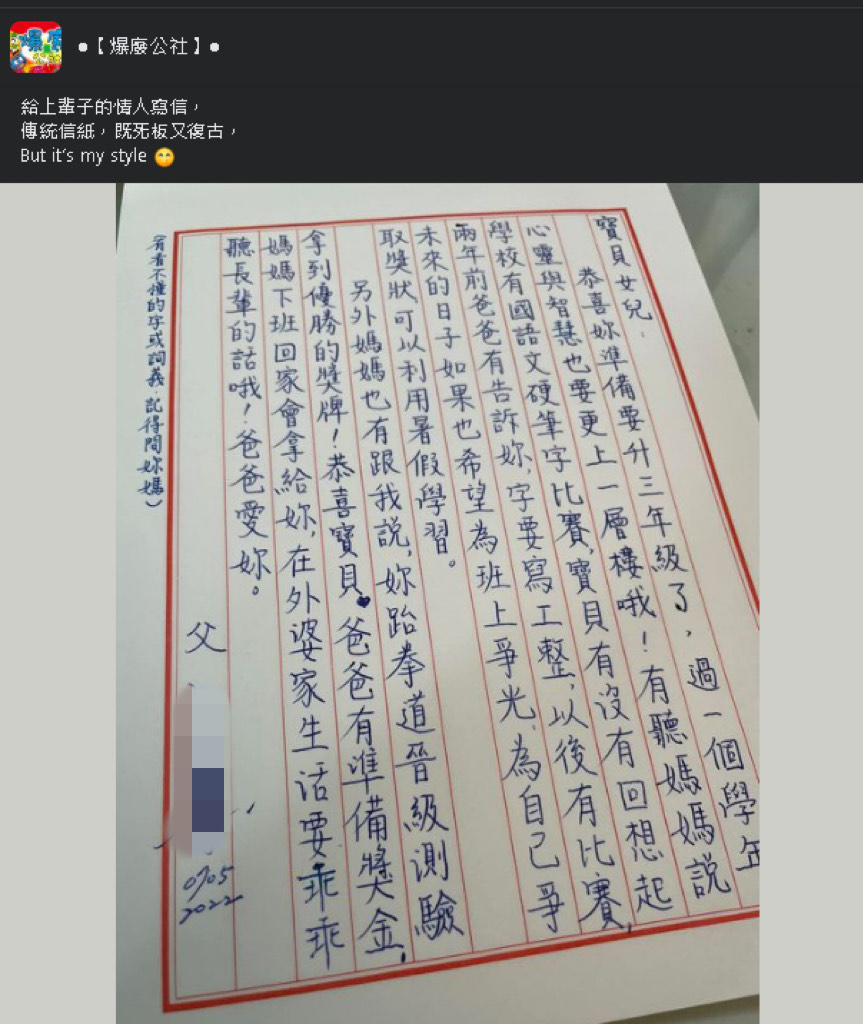 ●【爆廢公社】●
給上輩子的情人寫信，
傳統信紙，既死板又復古，
But it's my style
寶貝女兒：
恭喜妳準備要升三年級了，過一個學年
心靈與智慧也要更上一層樓哦！有聽媽媽說
學校有國語文硬筆字比賽，寶貝有沒有回想起
兩年前爸爸有告訴妳，字要寫工整，以後有比賽，
未來的日子如果也希望為班上爭光，為自己爭
取獎狀，可以利用暑假學習。
另外媽媽也有跟我說，妳跆拳道晉級測驗
拿到優勝的獎牌！恭喜寶貝。爸爸有準備獎金，
媽媽下班回家會拿給妳，在外婆家生活要乖乖
聽長輩的話哦！爸爸愛妳。
父
07/05
2022
（有看不懂的字或詞義，記得問妳媽）